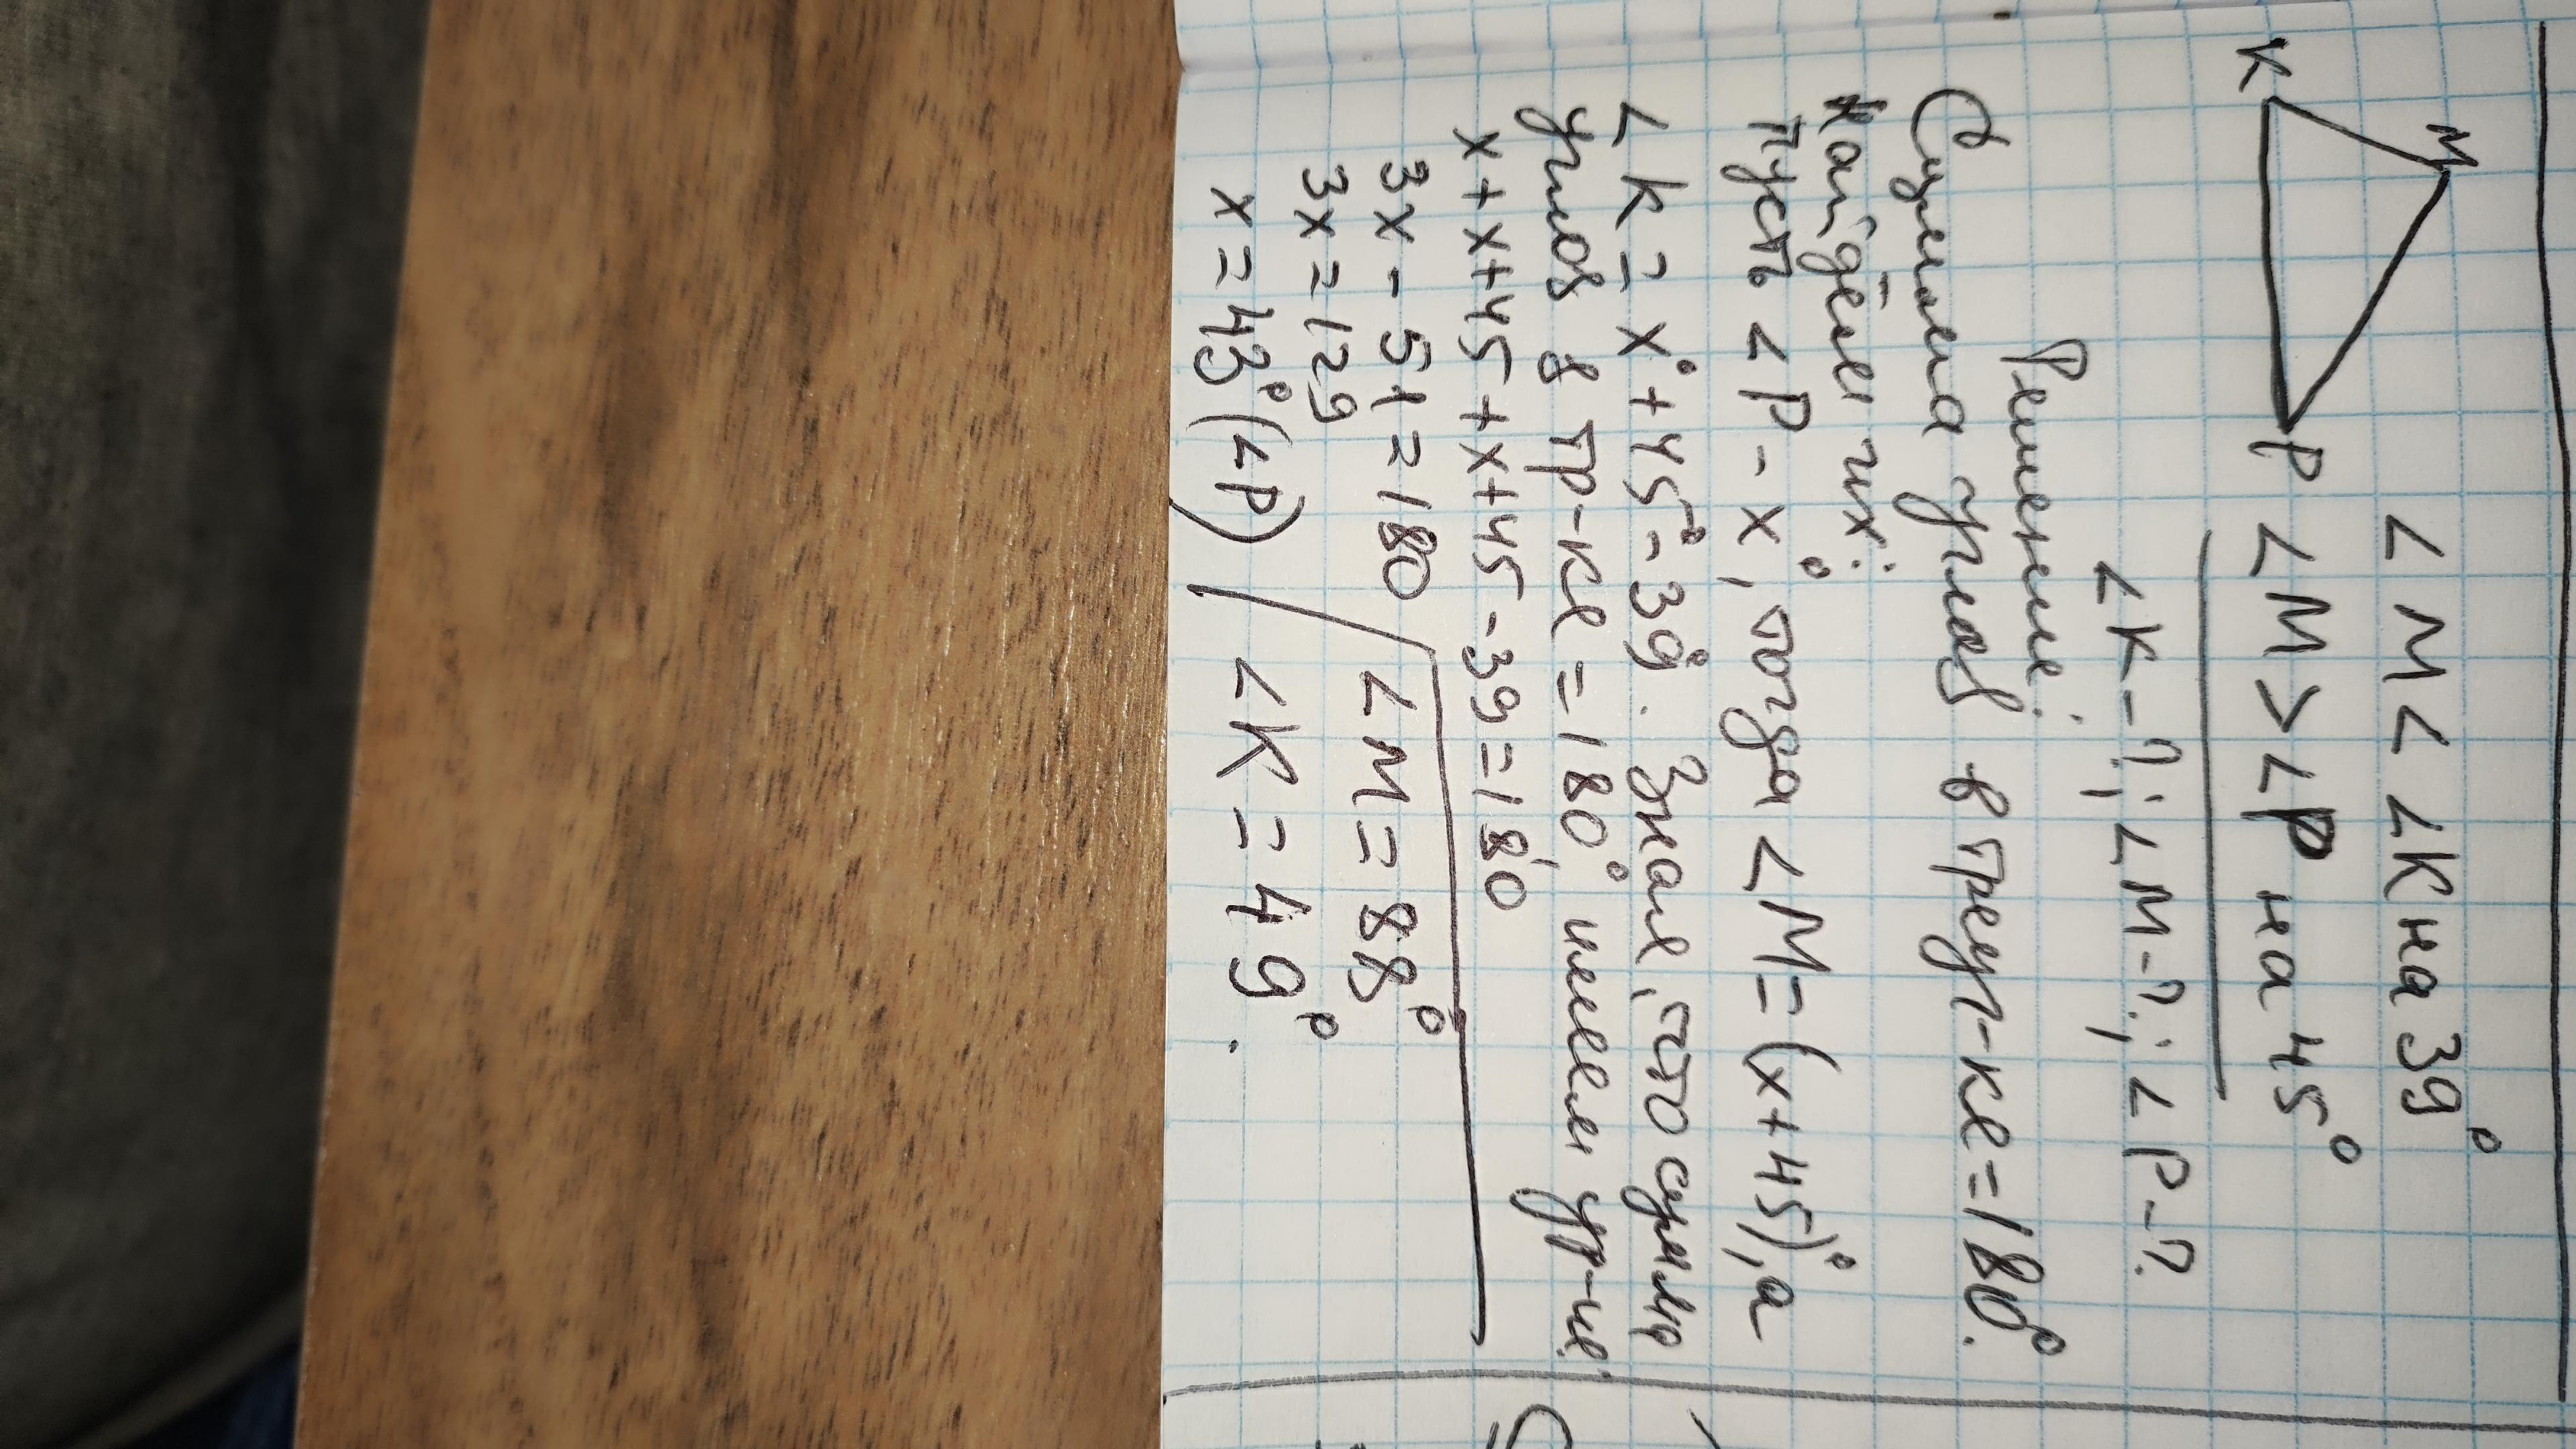 M
K
P
∠M < ∠K на 39°
∠M > ∠P на 45°
∠K - ?; ∠M - ?; ∠P - ?
Решение:
Сумма углов в треуг-ке = 180°.
Найдём их:
пусть ∠P - x°, тогда ∠M = (x + 45)°, а
∠K = x° + 45° - 39°. Зная, что сумма
углов в тр-ке = 180°, имеем ур-ие:
x + x + 45 + x + 45 - 39 = 180
3x - 51 = 180
3x = 129
x = 43° (∠P)
∠M = 88°
∠K = 49°.